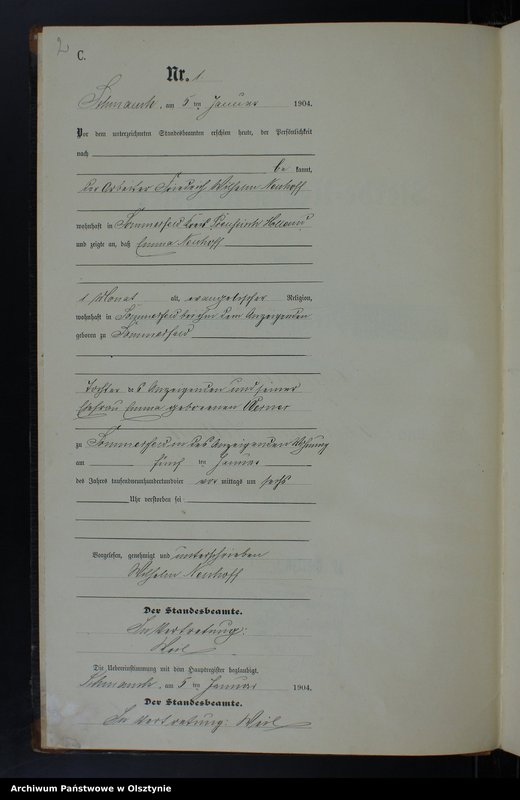 2
C.
Nr. 1
Schmauch, am 5 ten Januar 1904.
Vor dem unterzeichneten Standesbeamten erschien heute, der Persönlichkeit
nach
be kannt,
der Arbeiter Friedrich Wilhelm Neuhoff
wohnhaft in Sommerfeld Kreis Preußisch Holland
und zeigte an, daß Emma Neuhoff
1 Monat alt, evangelischer Religion,
wohnhaft in Sommerfeld bei dem Anzeigenden
geboren zu Sommerfeld
Tochter des Anzeigenden und seiner
Ehefrau Emma geborenen Werner
zu Sommerfeld in des Anzeigenden Wohnung
am fünf ten Januar
des Jahres tausendneunhundertundvier vor mittags um sechs
Uhr verstorben sei
Vorgelesen, genehmigt und unterschrieben
Wilhelm Neuhoff
Der Standesbeamte.
In Vertretung:
Weil
Die Uebereinstimmung mit dem Hauptregister beglaubigt.
Schmauch, am 5 ten Januar 1904.
Der Standesbeamte.
In Vertretung: Weil
Archiwum Państwowe w Olsztynie